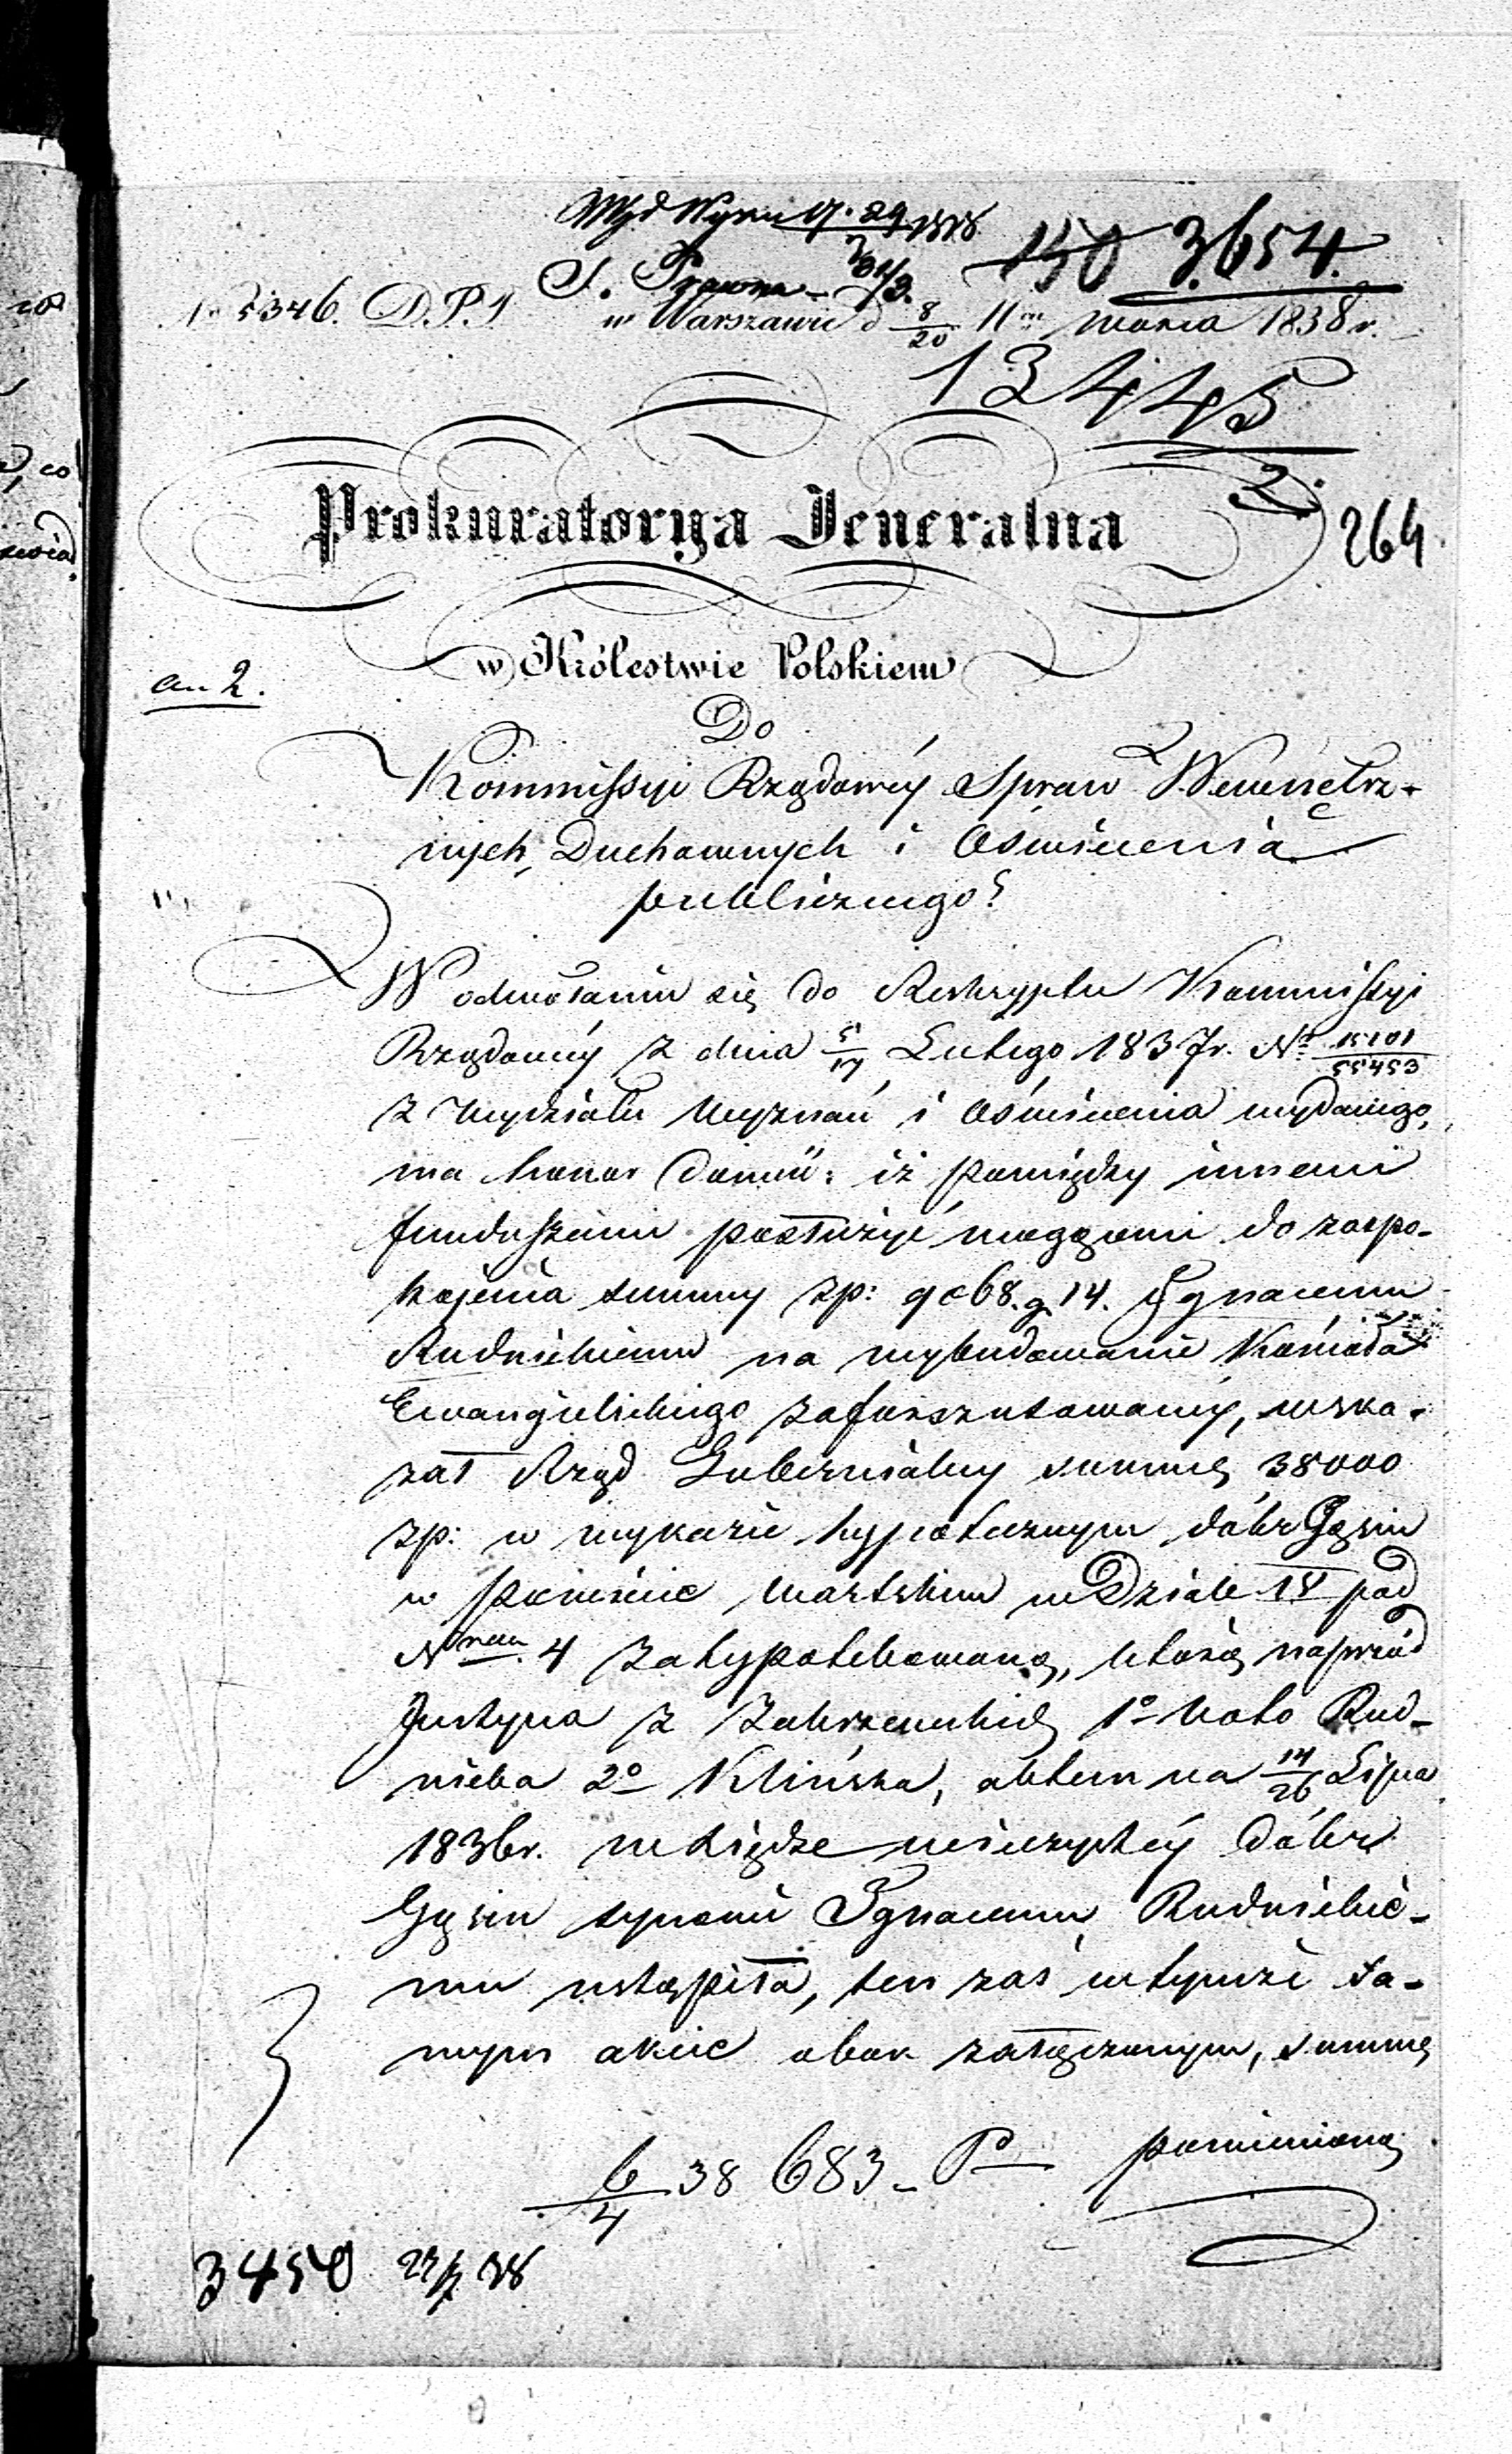 Wyd Wyzn 17. 29
150 3654.
S. Prawna 21/3.
No 5346. D.P.I w Warszawie d 8/20 Marca 1838 r.
13445
2.
Prokuratorya Jeneralna
264
w Królestwie Polskiem
an 2.
Do
Kommissyi Rządowéy Spraw Wewnętrz-
nych, Duchownych i Oświecenia
publicznego
W odwołaniu się do Reskryptu Kommissyi
Rządowéy z dnia 5/17 Lutego 1837 r. No 15101/55453
z Wydziału Wyznań i Oświecenia wydanego,
ma honor donieść: iż pomiędzy innemi
funduszami posłużyć mogącemi do zaspo-
kojenia summy zp: 9068. g. 14. Ignacemu
Rudnickiemu na wybudowanie Kościoła
Ewangelickiego zaforszusowanéy, wska-
zał Rząd Gubernialny summę 38000
zp: w wykazie hypotecznym dóbr Gąsin
w Powiecie Wartskim w Dziale IV pod
Nrem 4 zahypotekowaną, którą naprzód
Justyna z 1o voto Rud-
nicka 2o Klińska, aktem na 14/26 Lipca
1836 r. w księdze wieczystéy dóbr
Gąsin synowi Ignacemu Rudnickie-
mu ustąpiła, ten zaś w tymże sa-
mym akcie obok załączonym, summę
pomienioną
6/4 38 683 - P
3450 22/3 38